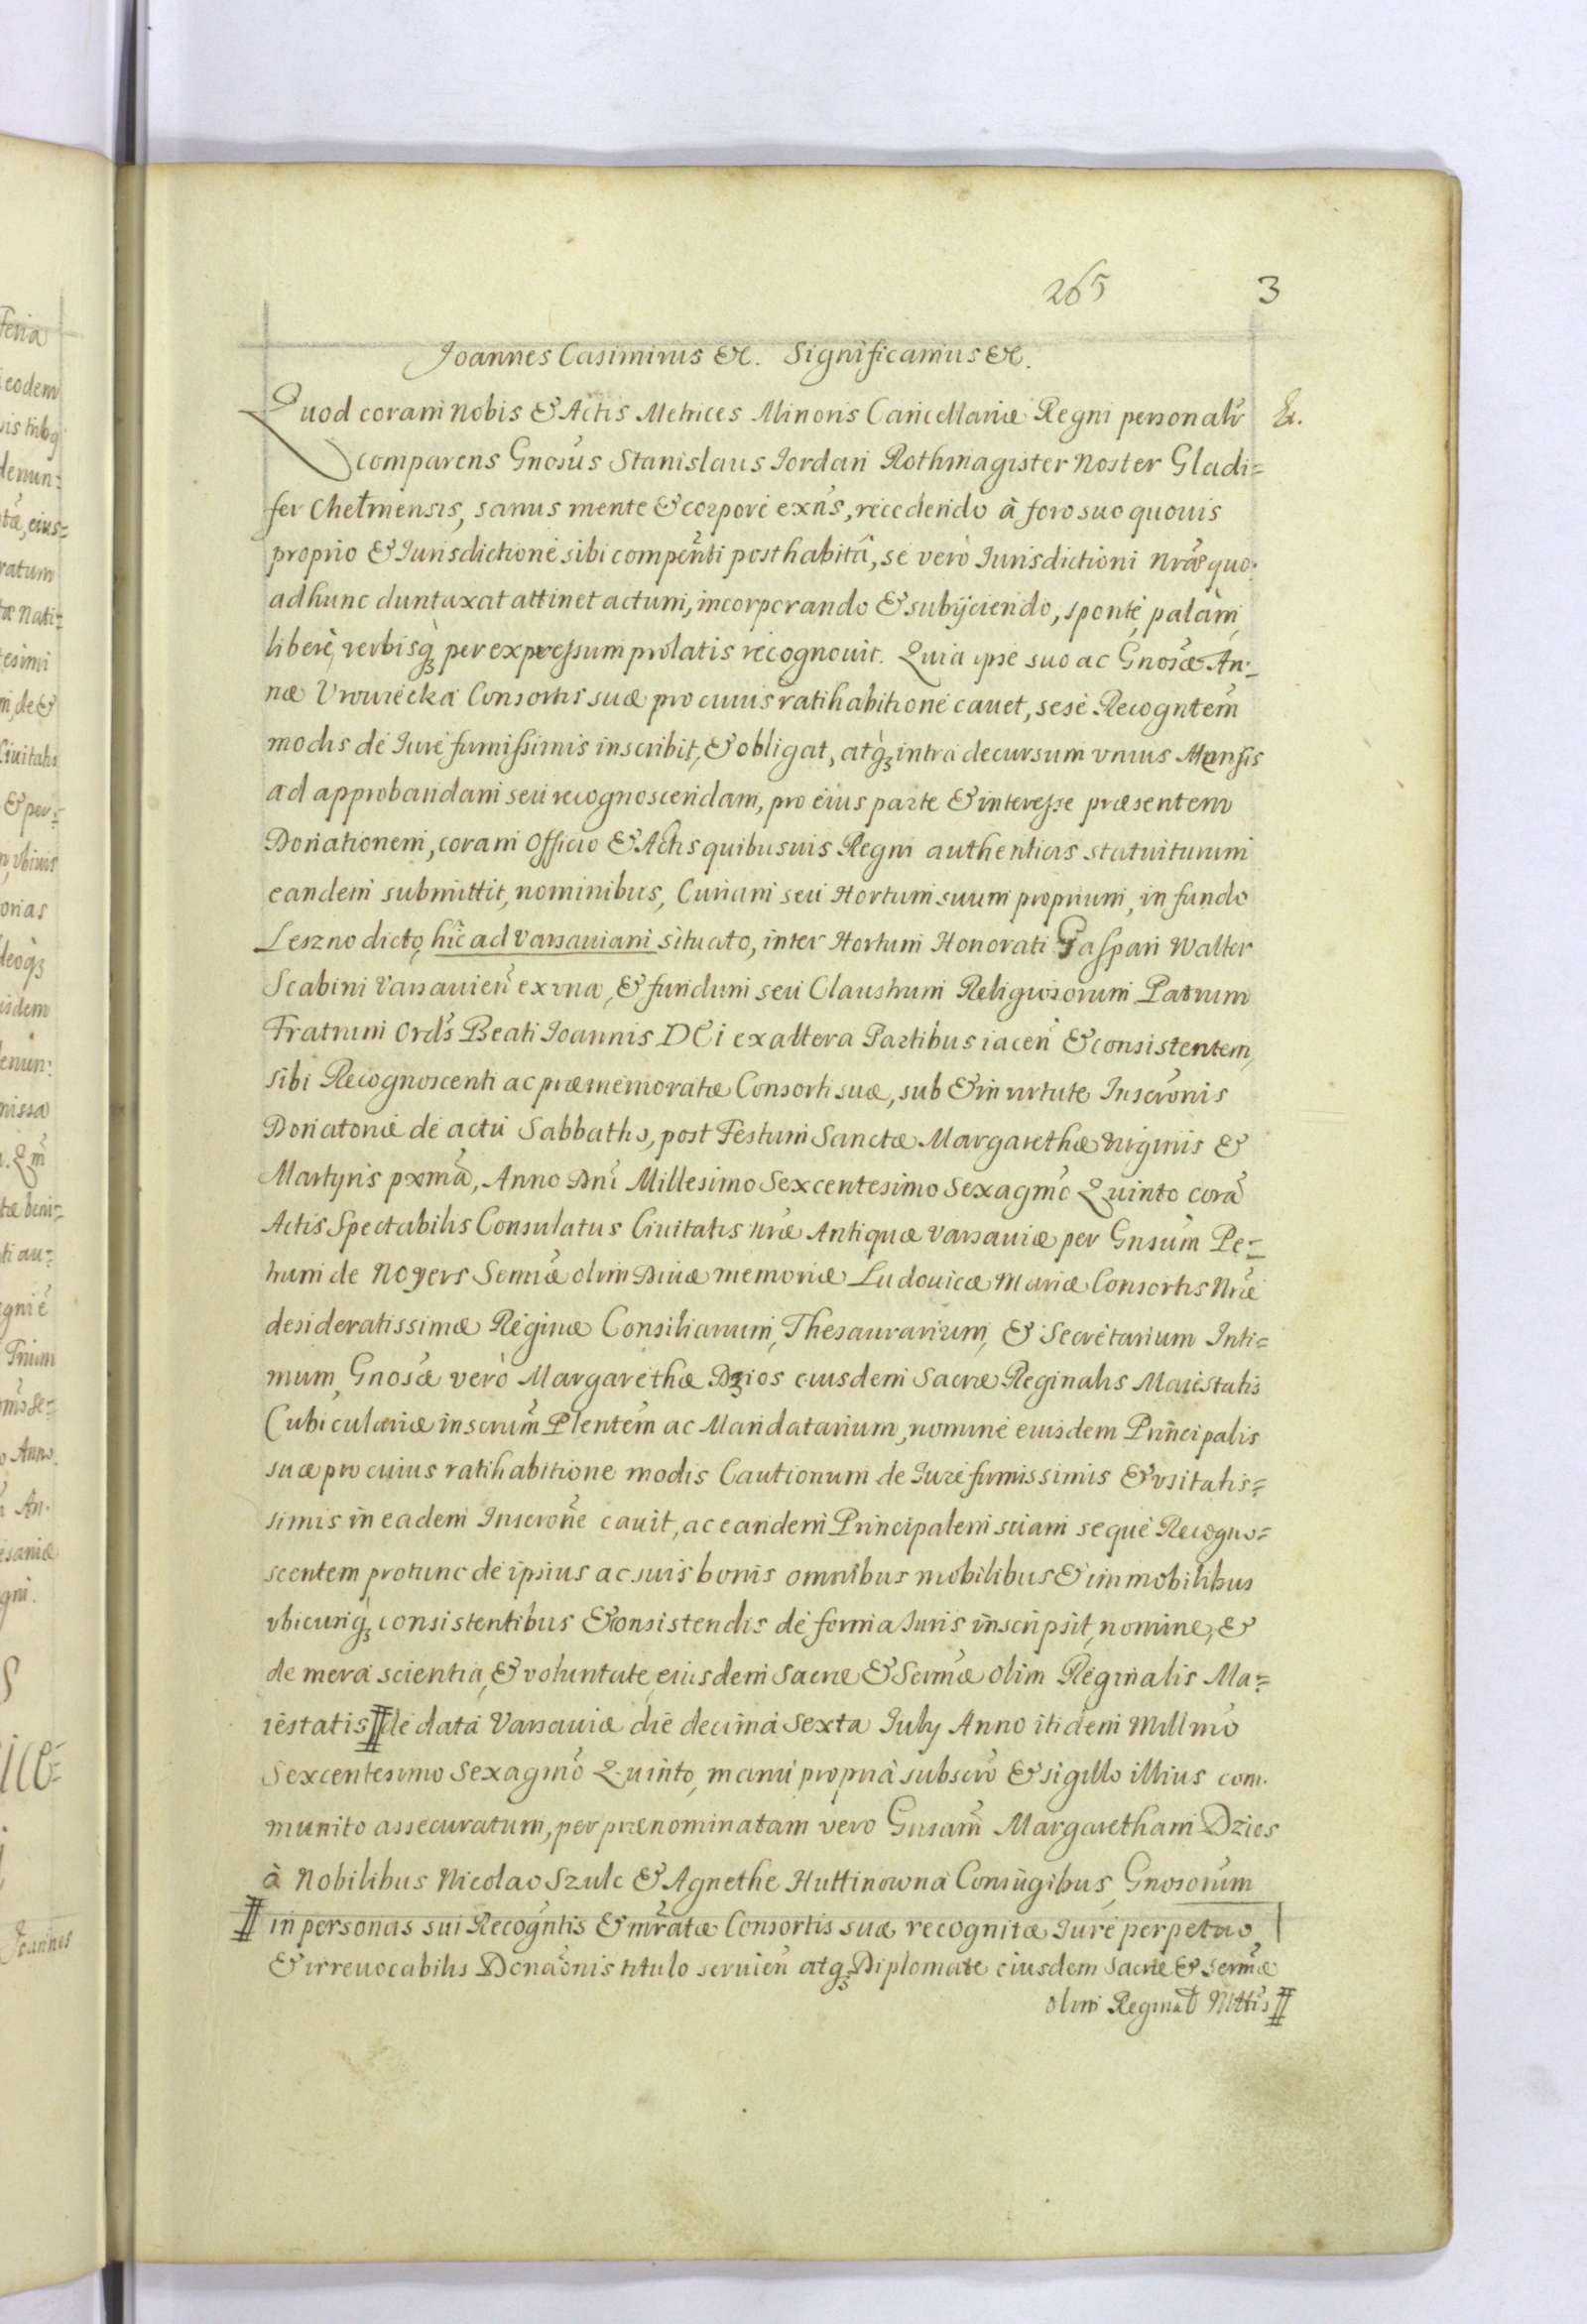 265 3
Joannes Casimirus &c. Significamus &c.
Quod coram nobis & Actis Metrices Minoris Cancellariæ Regni personalr̃ &.
comparens Gnosũs Stanislaus Iordan Rothmagister Noster Gladi=
fer Chełmensis, sanus mente & corpore exñs, recedendo à foro suo quouis
proprio & Iurisdictione sibi compeñti posthabitâ, se verò Iurisdictioni Nr̃æ quo:
adhunc duntaxat attinet actum, incorporando & subijciendo, spontè, palàm,
liberè, verbisq̀ꝫ per expressum prolatis recognouit. Quia ipse suo ac Gnosæ̃ An:=
næ Vrowiecka Consortis suæ pro cuius ratihabitione cauet, sese Recogntem̃
modis de Iure firmissimis inscribit, & obligat, atq̀ꝫ intra decursum vnius Mensis
ad approbandam seu recognoscendam, pro eius parte & interesse præsentem
Donationem, coram Officio & Actis quibusuis Regni authenticis statuiturum
eandem submittit, nominibus, Curiam seu Hortum suum proprium, in fundo
Leszno dicto, hîc ad Varsauiam situato, inter Hortum Honorati Gaspari Walter
Scabini Varsauień ex vna, & fundum seu Claustrum Religiosorum Patrum
Fratrum Ord̃s Beati Ioannis DEi ex altera Partibus iaceñ & consistentem,
sibi Recognoscenti ac præmemoratæ Consorti suæ, sub & in virtute Inscrõnis
Donatoriæ de actu Sabbatho, post Festum Sanctæ Margarethæ Virginis &
Martyris pxmã, Anno Dnĩ Millesimo Sexcentesimo Sexagmõ Quinto corã
Actis Spectabilis Consulatus Ciuitatis nr̃æ Antiquæ Varsauiæ per Gnsũm Pe=
trum de Noyers Sermæ̃ olim Diuæ memoriæ Ludouicæ Mariæ Consortis Nr̃æ
desideratissimæ Reginæ Consiliarium, Thesaurarium, & Secretarium Inti=
mum, Gnosæ̃ verò Margarethæ Dzios eiusdem Sacræ Reginalis Maiestatis
Cubiculariæ inscrum̃ Plentem̃ ac Mandatarium, nomine eiusdem Principalis
suæ pro cuius ratihabitione modis Cautionum de Iure firmissimis & vsitatis=
simis in eadem Inscrone᷉ cauit, ac eandem Principalem suam seque Recogno=
scentem protunc de ipsius ac suis bonis omnibus mobilibus & immobilibus
vbicunq̀ꝫ consistentibus & consistendis de forma Iuris inscripsit, nomine, &
de mera scientia, & voluntate, eiusdem Sacræ & Sermæ̃ olim Reginalis Ma=
iestatis ╫ de data Varsauiæ die decima sexta July Anno itidem Millmõ
Sexcentesimo Sexagmõ Quinto, manu propria subscrõ & sigillo illius com.
munito assecuratum, per prænominatam vero Gnsam̃ Margaretham Dzios
à Nobilibus Nicolao Szulc & Agnethe Huttinowna Coniugibus, Gnosorum
╫ in personas sui Recogñtis & mr̃atæ Consortis suæ recognitæ Iure perpetuo,
& irreuocabilis Donaõnis titulo seruień atqꝫ Diplomate eiusdem Sacræ & Sermæ̃
olim Reginał Mttis̃ ╫